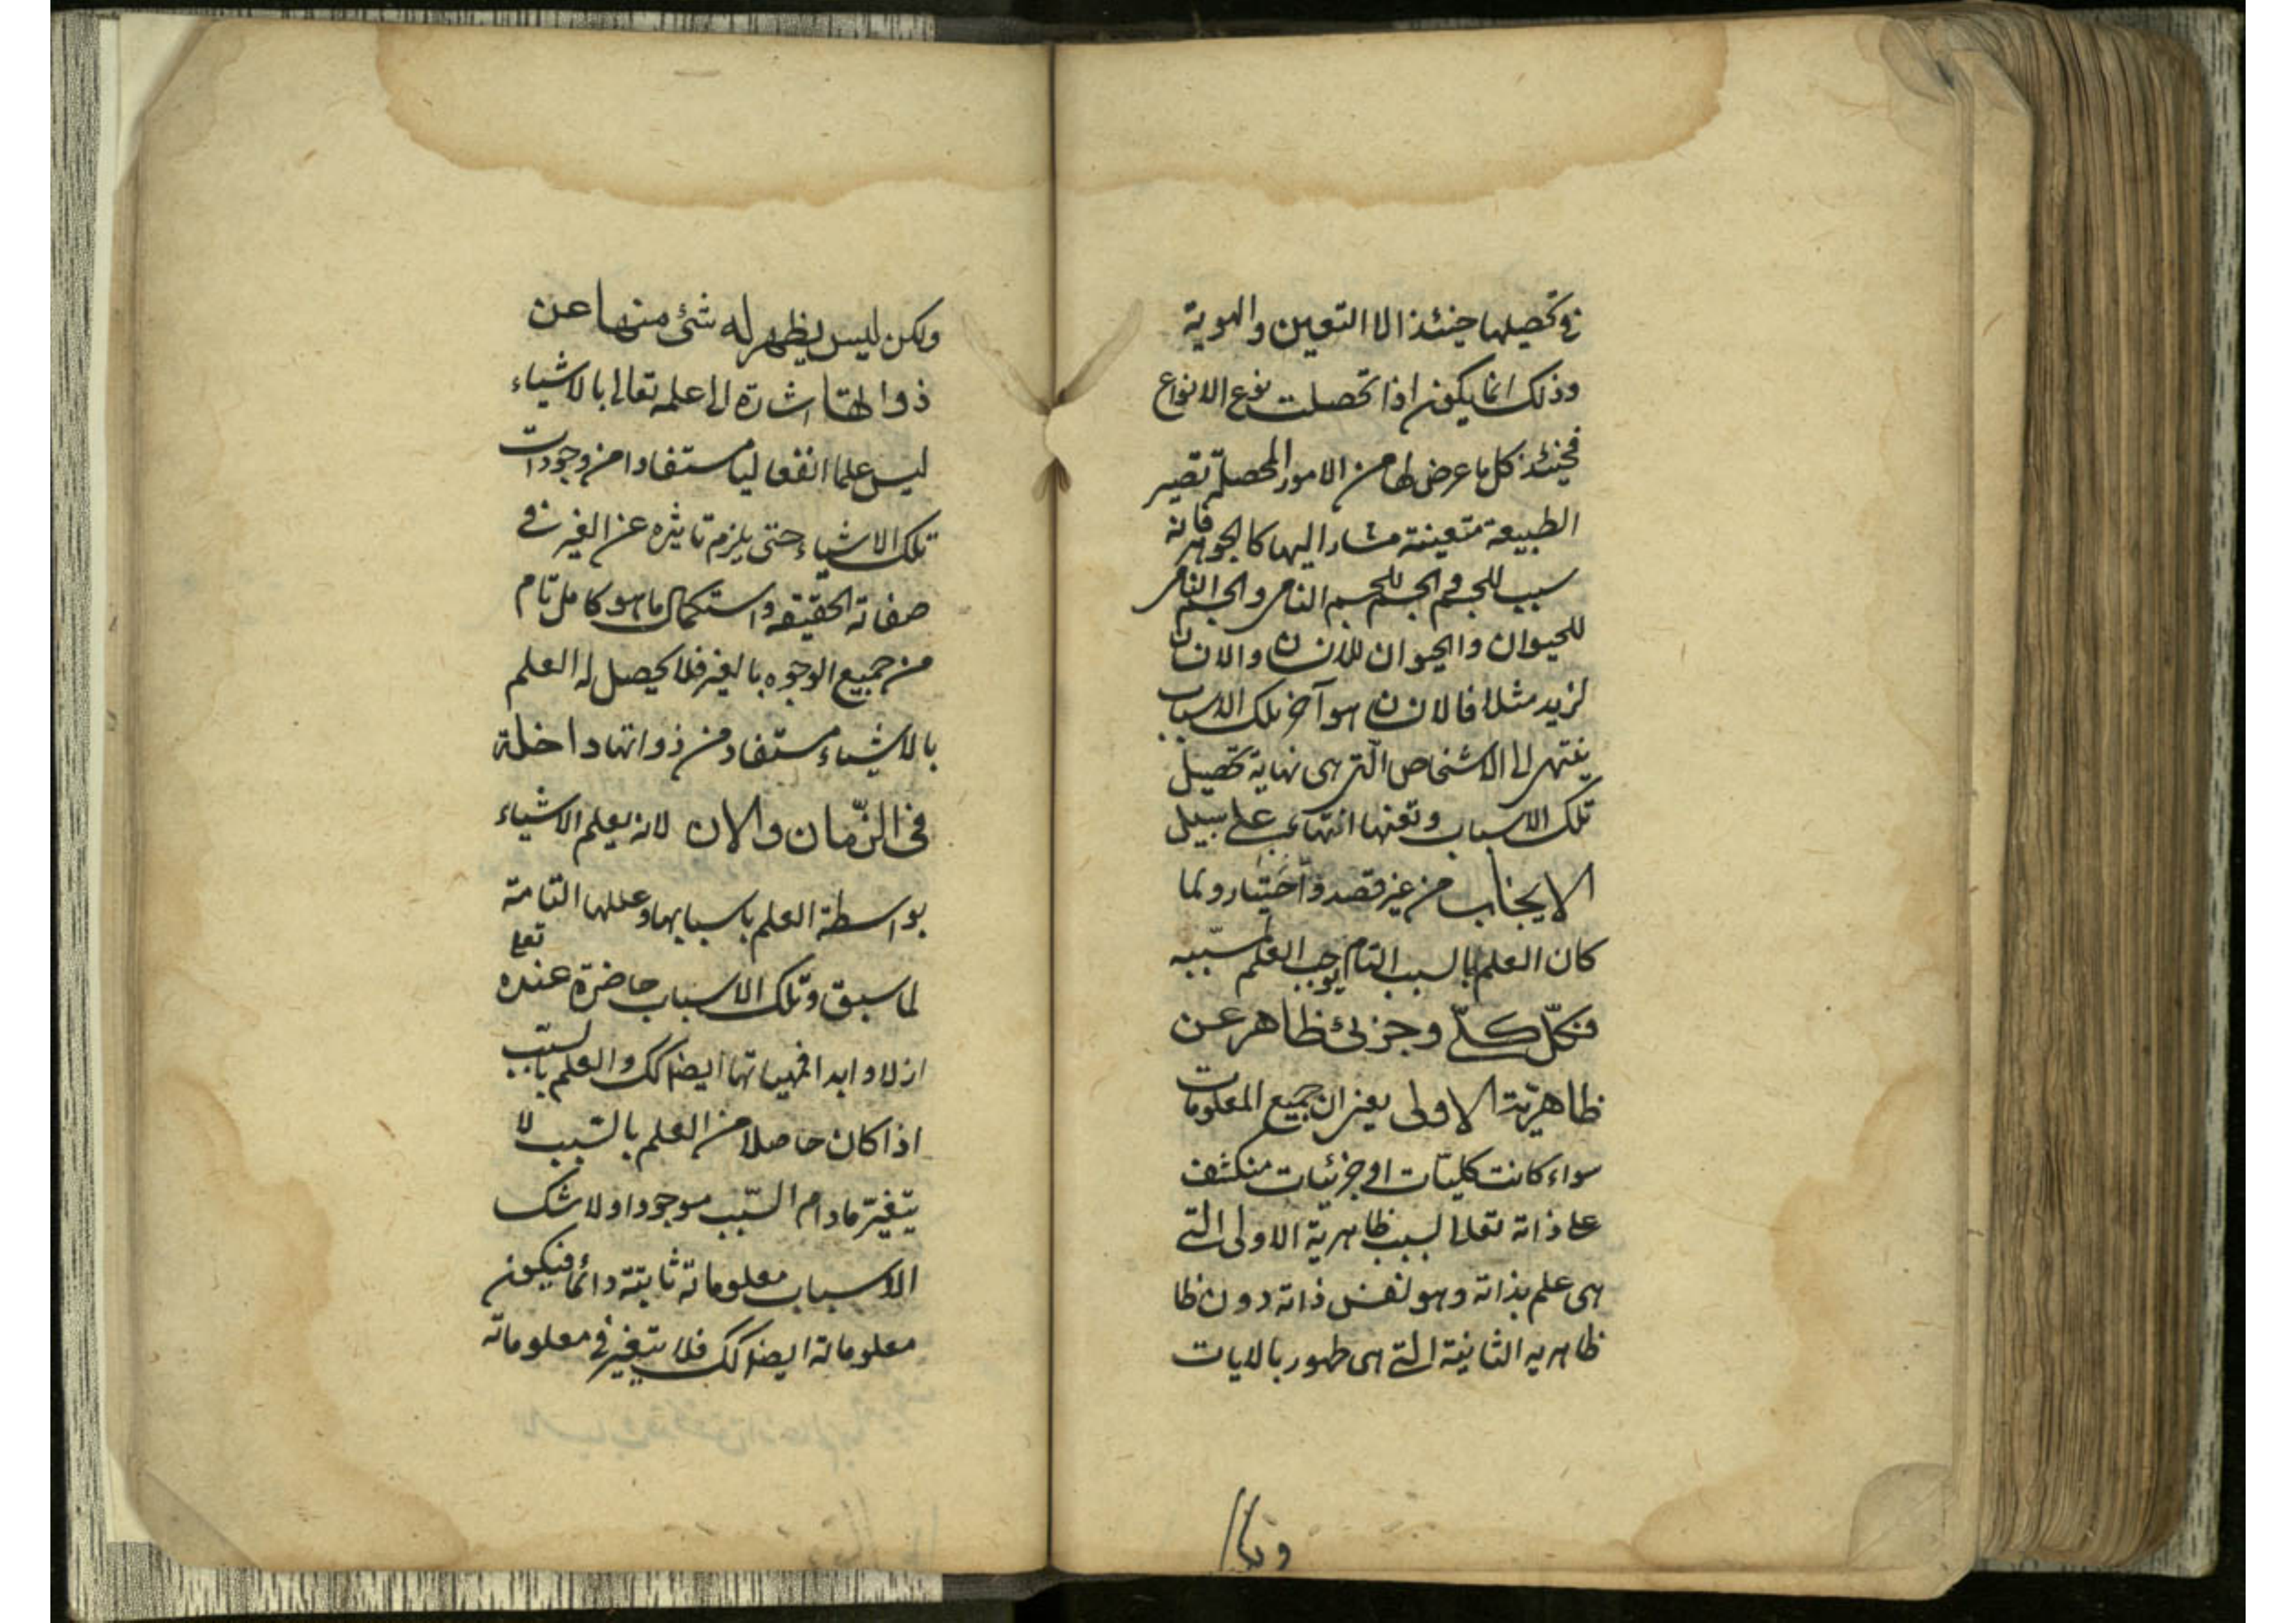 في تحصيلها حينئذ الا التعين والهوية
وذلك انما يكون اذا تحصلت نوع الانواع
فحينئذ كل ما عرض لها من الامور المحصلة تصير
الطبيعة متعينة مشارا اليها كالجوهر فانه
سبب للجسم والجسم للجسم النامى والجسم النامى
للحيوان والحيوان للانسان والانسان
لزيد مثلا فالانسان هو آخر تلك الاسباب
ينتهى الى الاشخاص التى هى نهاية تحصيل
تلك الاسباب وتعينها انتهاء على سبيل
الايجاب من غير قصد واختيار ولما
كان العلم بالسبب التام يوجب العلم بمسببه
فكلّ كلّى وجزئى ظاهر عن
ظاهريّته الاولى يعنى ان جميع المعلومات
سواء كانت كليّات او جزئيات منكشف
على ذاته تعالى بسبب ظاهرية الاولى التى
هى علم بذاته وهو نفس ذاته دون ظا
ظاهريه الثانية التى هى ظهور بالايات
ولكن
ولكن ليس يظهر له شئ منها عن
ذواتها اشارة الى علمه تعالى بالاشياء
ليس علما انفعاليا مستفادا من وجودات
تلك الاشياء حتى يلزم تاثيره عن الغير فى
صفاته الحقيقه واستكمال ما هو كامل تام
من جميع الوجوه بالغير فلا يحصل له العلم
بالاشياء مستفاد من ذواتها داخلة
فى الزّمان والان لانه يعلم الاشياء
بواسطة العلم باسبابها وعللها التامة
لما سبق وتلك الاسباب حاضرة عنده تعا
ازلا وابدا فمسبباتها ايضا كك والعلم بالمسبّب
اذا كان حاصلا من العلم بالسّبب لا
يتغيّر مادام السّبب موجودا ولا شك
الاسباب معلوماته ثابتة دائما فيكون
معلوماته ايضا كك فلا يتغير فى معلوماته